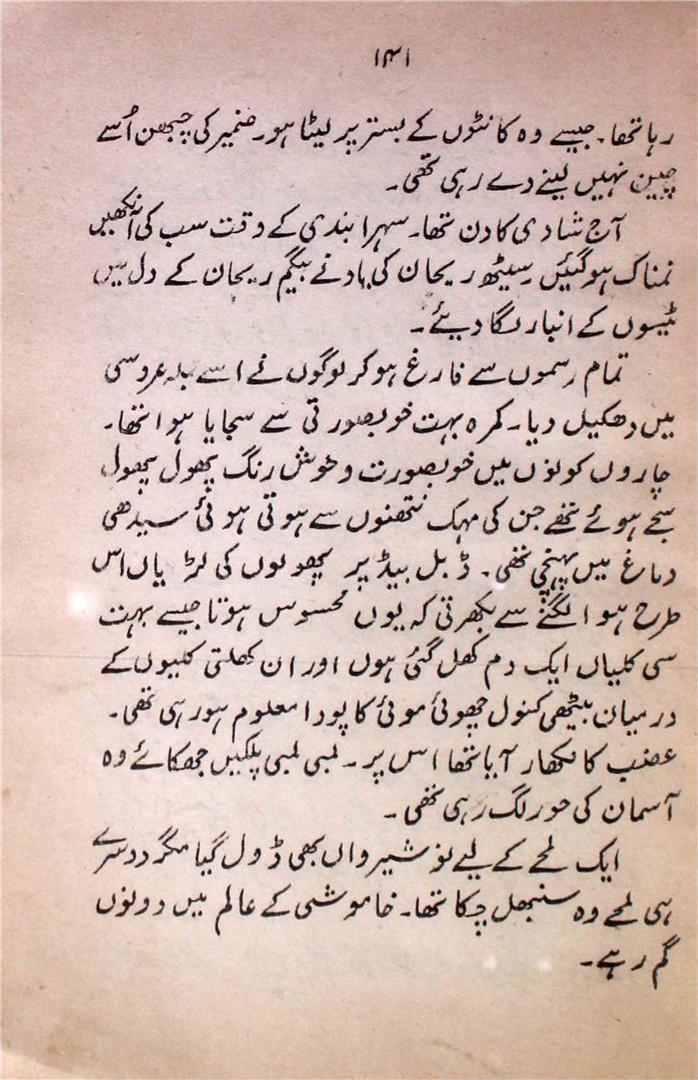 ۱۴۱
رہا تھا۔ جیسے وہ کانٹوں کے بستر پر لیٹا ہو۔ ضمیر کی چبھن اُسے
چین نہیں لینے دے رہی تھی۔
آج شادی کا دن تھا۔ سہرا بندی کے وقت سب کی آنکھیں
نمناک ہو گئیں۔ سیٹھ ریحان کی یاد نے بیگم ریحان کے دل میں
ٹیسوں کے انبار لگا دیئے۔
تمام رسموں سے فارغ ہو کر لوگوں نے اسے حجلہ عروسی
میں دھکیل دیا۔ کمرہ بہت خوبصورتی سے سجایا ہوا تھا۔
چاروں کونوں میں خوبصورت و خوش رنگ پھول پھول
سجے ہوئے تھے جن کی مہک نتھنوں سے ہوتی ہوئی سیدھی
دماغ میں پہنچی تھی۔ ڈبل بیڈ پر پھولوں کی لڑیاں اس
طرح ہوا لگنے سے بکھرتی کہ یوں محسوس ہوتا جیسے بہت
سی کلیاں ایک دم کھل گئی ہوں اور ان کھلتی کلیوں کے
درمیان بیٹھی کنول چھوئی موئی کا پودا معلوم ہو رہی تھی۔
غضب کا نکھار آیا تھا اس پر۔ لمبی لمبی پلکیں جھکائے وہ
آسمان کی حور لگ رہی تھی۔
ایک لمحے کے لیے نوشیرواں بھی ڈول گیا مگر دوسرے
ہی لمحے وہ سنبھل چکا تھا۔ خاموشی کے عالم میں دونوں
گم رہے۔